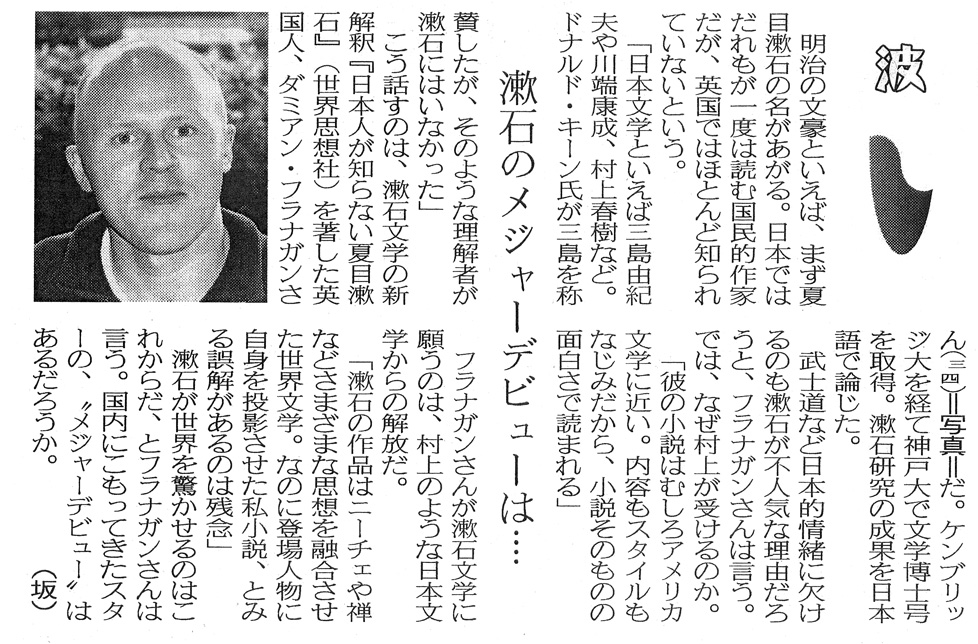 波
漱石のメジャーデビューは…
明治の文豪といえば、まず夏
目漱石の名があがる。日本では
だれもが一度は読む国民的作家
だが、英国ではほとんど知られ
ていないという。
「日本文学といえば三島由紀
夫や川端康成、村上春樹など。
ドナルド・キーン氏が三島を称
賛したが、そのような理解者が
漱石にはいなかった」
こう話すのは、漱石文学の新
解釈『日本人が知らない夏目漱
石』（世界思想社）を著した英
国人、ダミアン・フラナガンさ
ん（三四）＝写真＝だ。ケンブリッ
ジ大を経て神戸大で文学博士号
を取得。漱石研究の成果を日本
語で論じた。
武士道など日本的情緒に欠け
るのも漱石が不人気な理由だろ
うと、フラナガンさんは言う。
では、なぜ村上が受けるのか。
「彼の小説はむしろアメリカ
文学に近い。内容もスタイルも
なじみだから、小説そのものの
面白さで読まれる」
フラナガンさんが漱石文学に
願うのは、村上のような日本文
学からの解放だ。
「漱石の作品はニーチェや禅
などさまざまな思想を融合させ
た世界文学。なのに登場人物に
自身を投影させた私小説、とみ
る誤解があるのは残念」
漱石が世界を驚かせるのはこ
れからだ、とフラナガンさんは
言う。国内にこもってきたスタ
ーの、〝メジャーデビュー〟は
あるだろうか。　（坂）